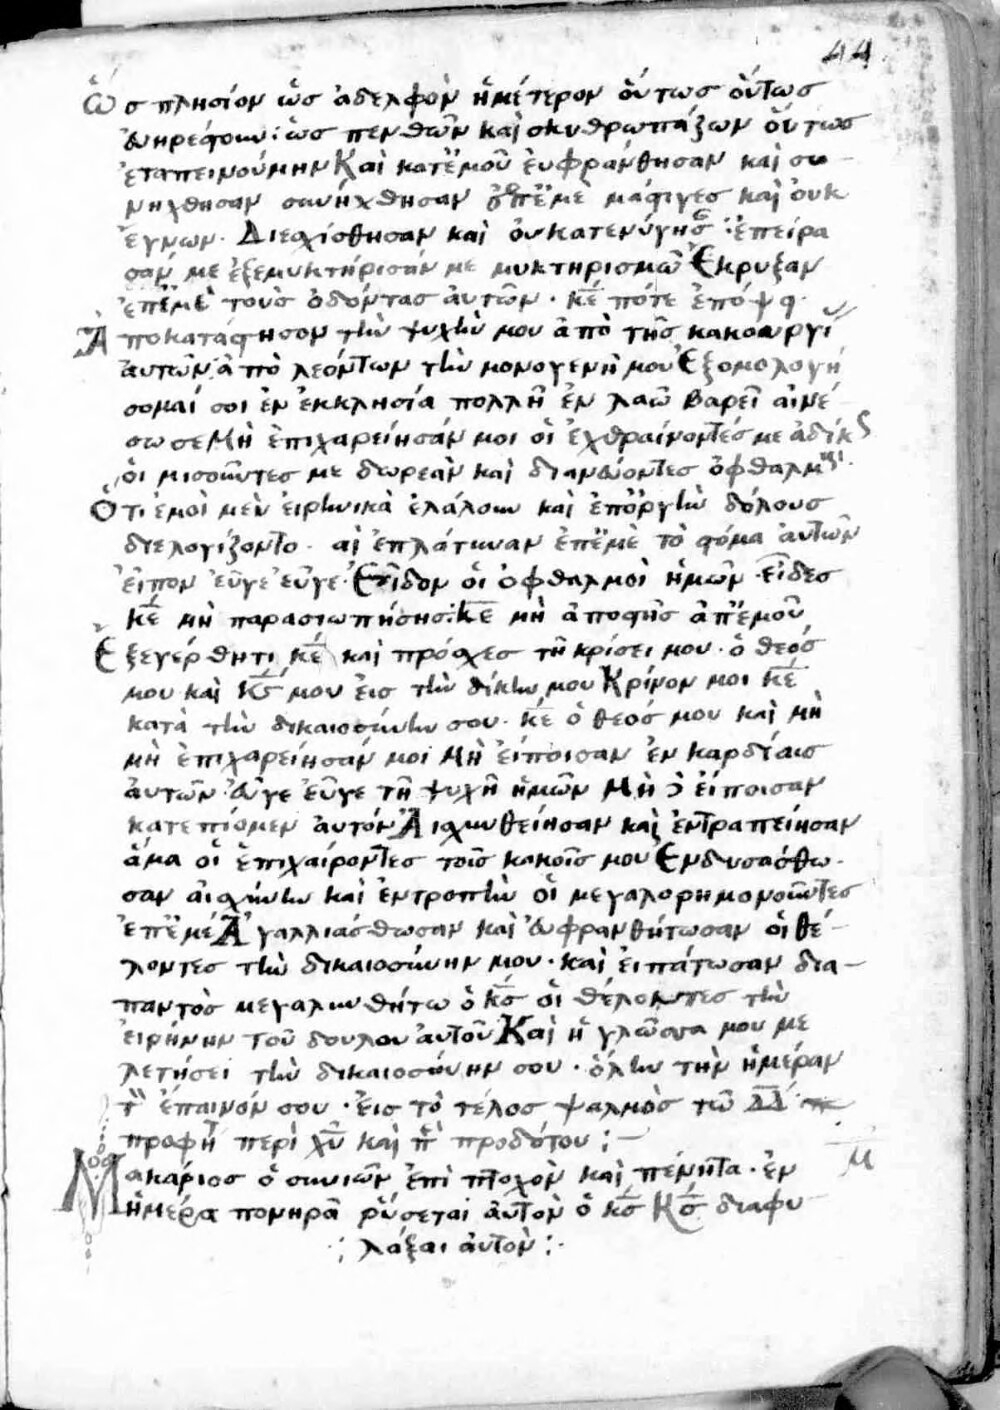 44
Ὡς πλησίον ὡς ἀδελφὸν ἡμέτερον οὕτως οὕτως
ἐυηρέστουν: ὡς πενθῶν καὶ σκυθρωπάζων οὕτως
ἐταπεινούμην Καὶ κατεμοῦ ἐυφράνθησαν καὶ συ-
νήχθησαν συνήχθησαν ἐπεμὲ μάστιγες καὶ ὀυκ
ἔγνων. Διεσχίσθησαν καὶ ὀυκατενύγησ ἐπείρα
σάν με ἐξεμυκτήρισάν με μυκτηρισμῶ Ἔκρυξαν
ἐπεμὲ τοὺς ὀδόντας ἀυτῶν. κε πότε ἐπόψη.
Ἀποκατάστησον τὴν ψυχήν μου ἀπὸ τῆς κακουργί
ἀυτῶν ἀπὸ λεόντων τὴν μονογενῆ μου Ἐξομολογή
σομαί σοι ἐν ἐκκλησία πολλῆ ἐν λαῶ βαρεῖ ἀινέ-
σω σε Μὴ ἐπιχαρείησάν μοι οἱ ἐχθραίνοντές με ἀδίκς
ὁι μισοῦντες με δωρεὰν καὶ διανέυοντες ὀφθαλμοι.
Ὅτι ἐμοὶ μὲν ἐιρηνικὰ ἐλάλουν καὶ ἐποργὴν δόλους
διελογίζοντο. αὶ ἐπλάτυναν ἐπεμὲ τὸ στόμα ἀυτῶν
ἐἶπον ἐῦγε ἐῦγε Εἶδον ὁι ὀφθαλμοὶ ἡμῶν. εἶδες
κε μὴ παρασιωπήσης: κε μὴ ἀποστῆς ἀπεμοῦ
Ἐξεγέρθητι κε καὶ πρόσχες τῆ κρίσει μου. ὁ θεός
μου καὶ κς μου ἐις τὴν δίκην μου Κρῖνον μοι κε
κατὰ τὴν δικαιοσύνην σου. κε ὁ θεός μου καὶ μὴ
μὴ ἐπιχαρείησάν μοι Μὴ ἐίποισαν ἐν καρδίαις
ἀυτῶν. ἐῦγε ἐῦγε τῆ ψυχῆ ἡμῶν Μὴ δ ἐίποισαν
κατεπίομεν ἀυτόν Ἀισχυνθείησαν καὶ ἐντραπείησαν
ἅμα οἱ ἐπιχαίροντες τοῖς κακοῖς μου Ἐνδυσάσθω-
σαν ἀισχύνην καὶ ἐντροπὴν οἱ μεγαλορημονοῦντες
ἐπεμέ Ἀγαλλιάσθωσαν καὶ ἐυφρανθήτωσαν οἱ θέ-
λοντες τὴν δικαιοσύνην μου. καὶ ἐιπάτωσαν δια-
παντὸς μεγαλυνθήτω ὁ κς οἱ θέλοντες τὴν
ἐιρήνην τοῦ δούλου ἀυτοῦ Καὶ ἡ γλῶσσα μου με
λετήσει τὴν δικαιοσύνην σου. ὅλην τὴν ἡμέραν
τὸ ἔπαινόν σου. ἐις τὸ τέλος ψαλμὸς τῶ δδ
προφη περὶ χυ καὶ περὶ προδότου :-
μ
Μακάριος ὁ συνιῶν ἐπὶ πτοχὸν καὶ πένητα. ἐν
ἡμέρα πονηρᾶ ῥύσεται ἀυτὸν ὁ κς Κς διαφυ-
λάξαι ἀυτὸν :.